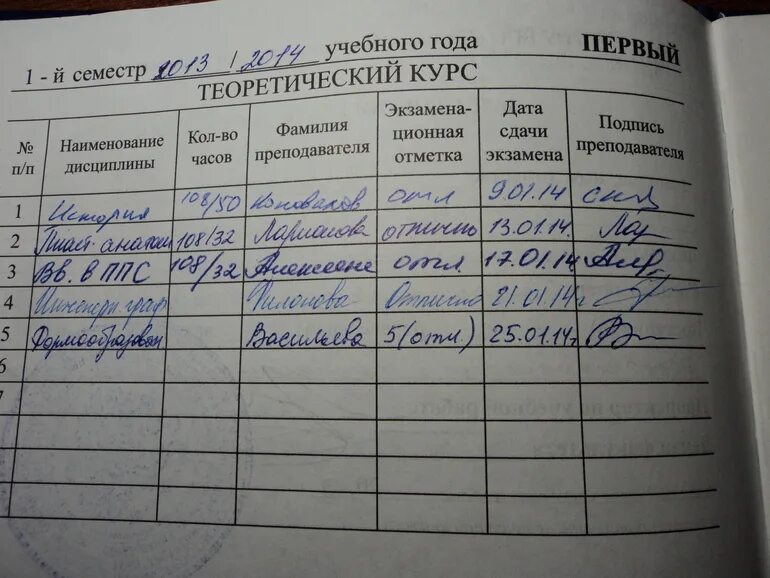 1 - й семестр 2013 / 2014 учебного года ПЕРВЫЙ
ТЕОРЕТИЧЕСКИЙ КУРС
№ п/п Наименование дисциплины Кол-во часов Фамилия преподавателя Экзамена-ционная отметка Дата сдачи экзамена Подпись преподавателя
1 История 108/50 Коновалов отл 9.01.14
2 Пласт. анатом 108/32 Ларионова отлично 13.01.14. Лар
3 Вв. в ППС 108/32 отл. 17.01.14
4 Инженерн. граф Филонова Отлично 21.01.14г
5 Формообразован Васильева 5(отл.) 25.01.14г
6
7